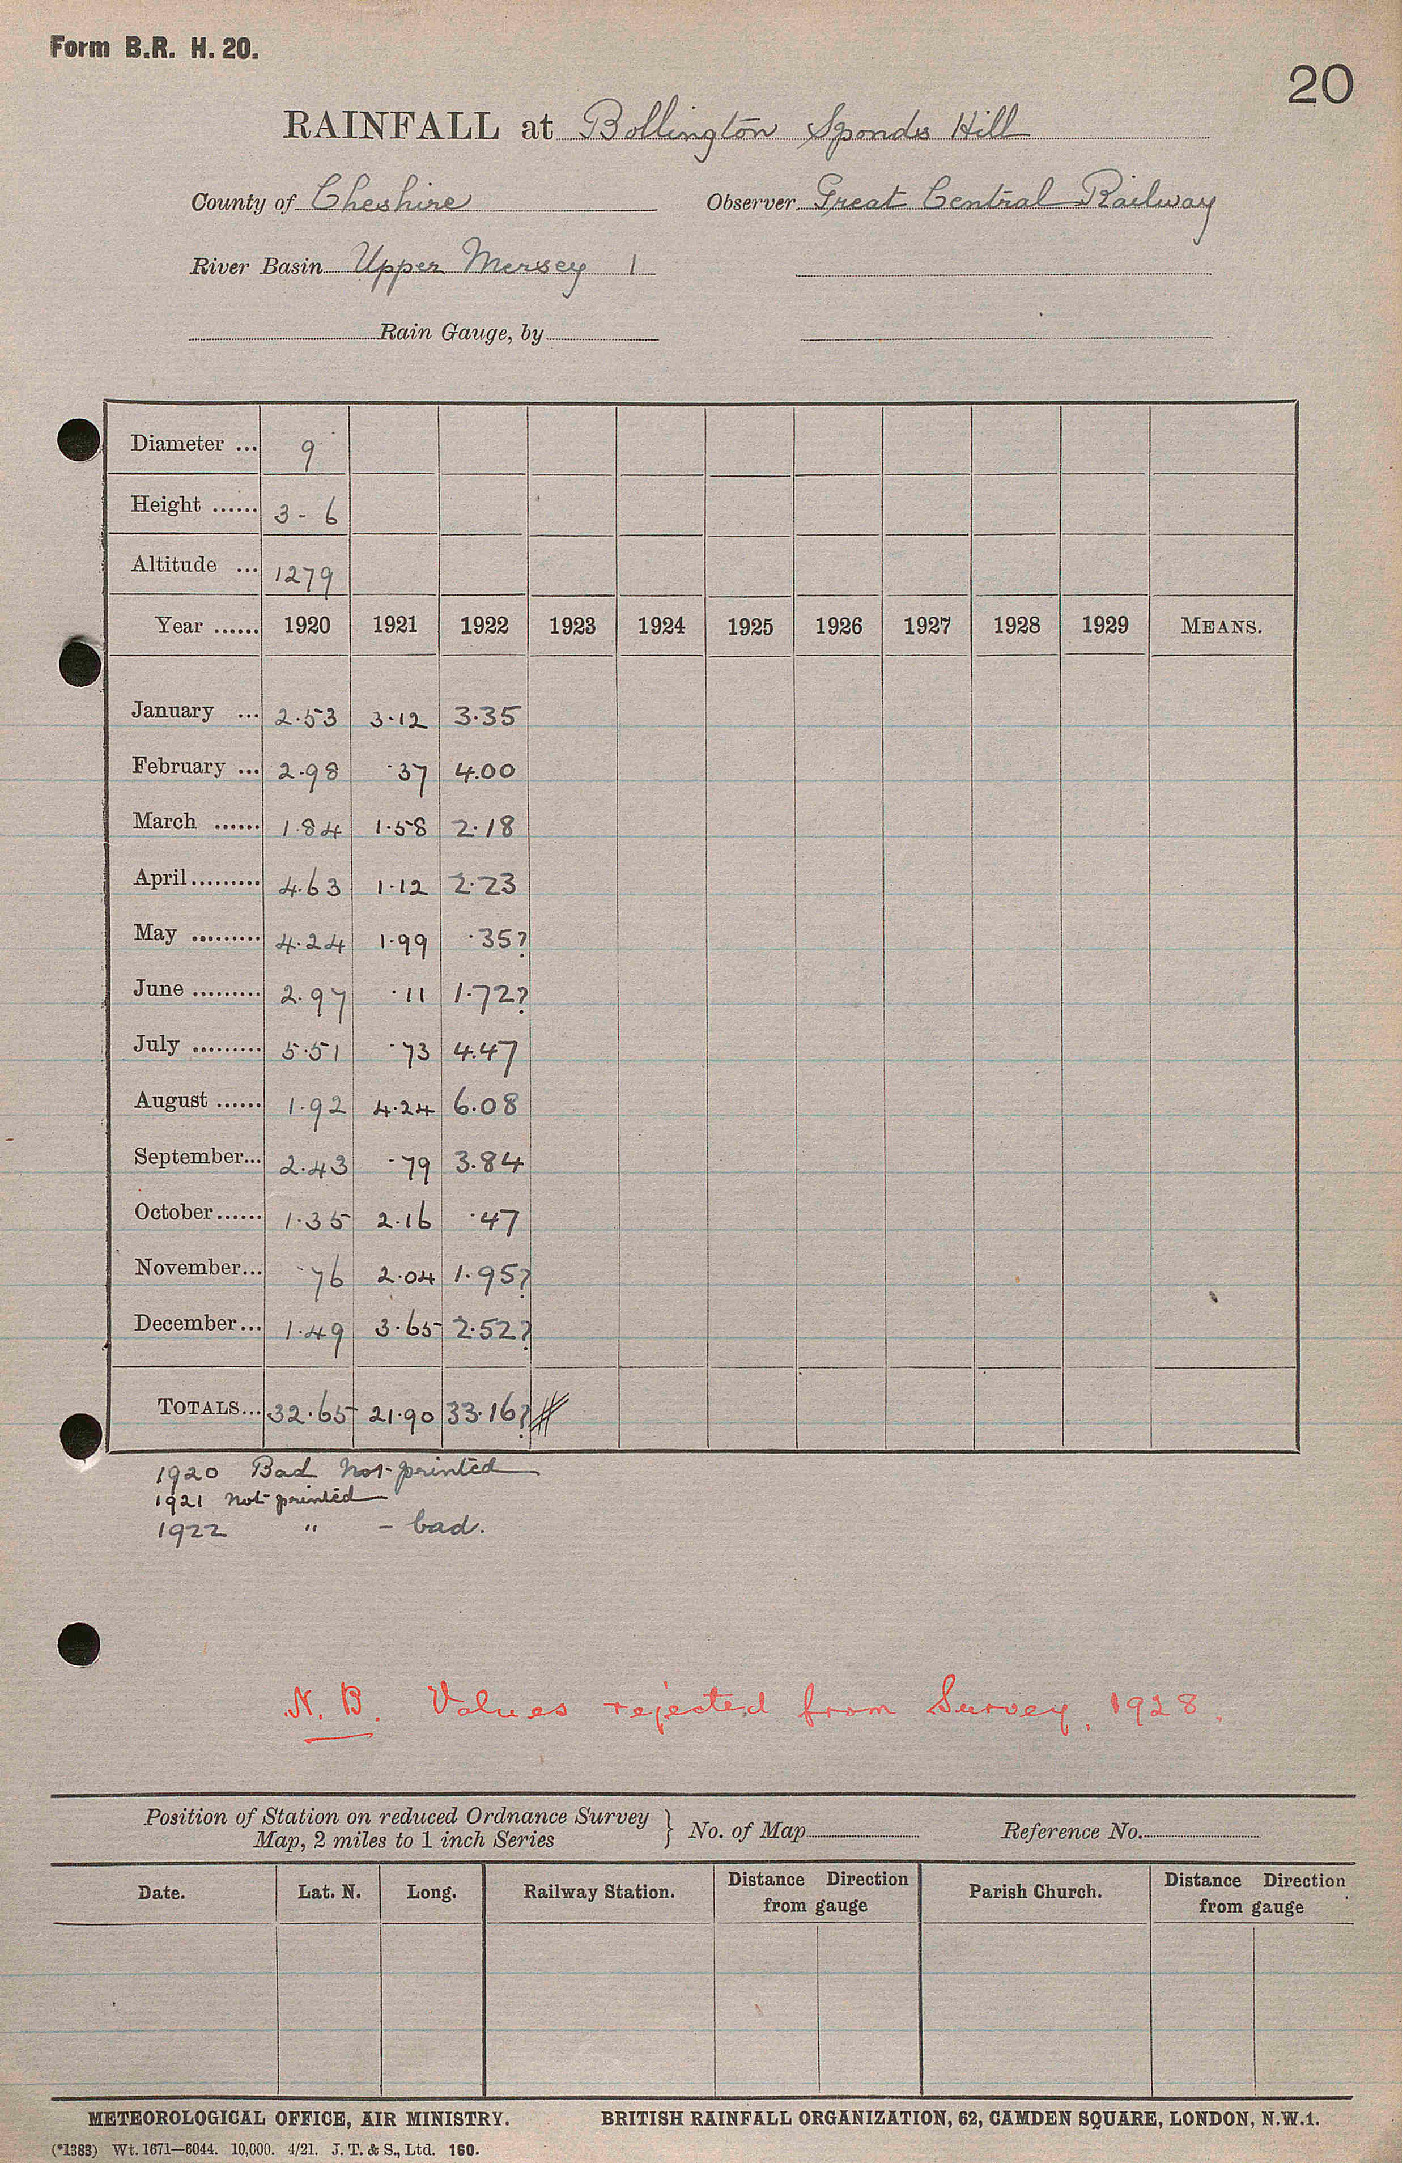 Form B.R. H. 20.
20
RAINFALL at Bollington Sponds Hill
County of Cheshire Observer Great Central Railway
River Basin Upper Mersey 1
Rain Gauge, by
Diameter ... 9
Height ...... 3-6
Altitude ... 1279
Year ...... 1920 1921 1922 1923 1924 1925 1926 1927 1928 1929 MEANS.
January ... 2.53 3.12 3.35
February ... 2.98 .37 4.00
March ...... 1.84 1.58 2.18
April ......... 4.63 1.12 2.23
May ......... 4.24 1.99 .35?
June ......... 2.97 .11 1.72?
July ......... 5.51 .73 4.47
August ...... 1.92 4.24 6.08
September... 2.43 .79 3.84
October ...... 1.35 2.16 .47
November... .76 2.04 1.95?
December... 1.49 3.65 2.52?
TOTALS... 32.65 21.90 33.16?
1920 Bad Not printed
1921 not printed
1922 " - bad.
N.B. Values rejected from Survey, 1928.
Position of Station on reduced Ordnance Survey
Map, 2 miles to 1 inch Series } No. of Map Reference No.
Date. Lat. N. Long. Railway Station. Distance Direction from gauge Parish Church. Distance Direction from gauge
METEOROLOGICAL OFFICE, AIR MINISTRY. BRITISH RAINFALL ORGANIZATION, 62, CAMDEN SQUARE, LONDON, N.W.1.
(*1383) Wt. 1671—6044. 10,000. 4/21. J. T. & S., Ltd. 160.